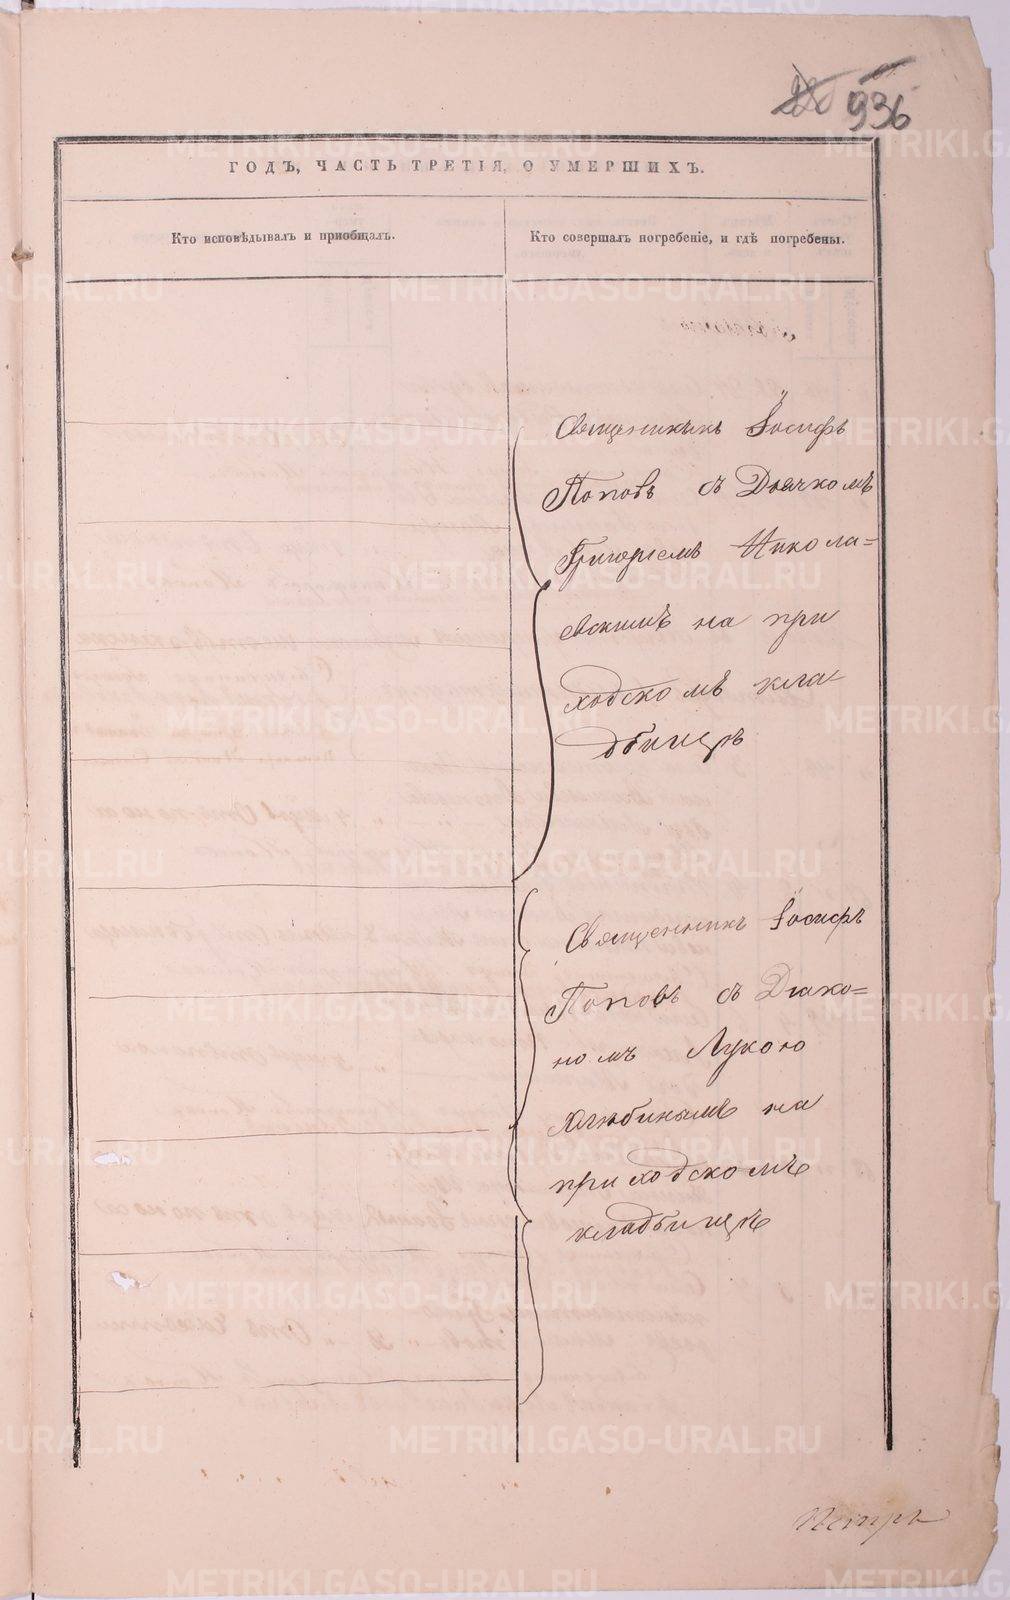 936
ГОДЪ, ЧАСТЬ ТРЕТІЯ, О УМЕРШИХЪ.
Кто исповѣдывалъ и пріобщалъ.
Кто совершалъ погребеніе, и гдѣ погребены.
Священникъ Іосифъ
Поповъ съ Дьячкомъ
Григоріемъ Никола=
евскимъ на при
ходскомъ кла-
дбищѣ
Священникъ Іосифъ
Поповъ съ Діако=
номъ Лукою
на
приходскомъ
кладбищѣ
METRIKI.GASO-URAL.RU